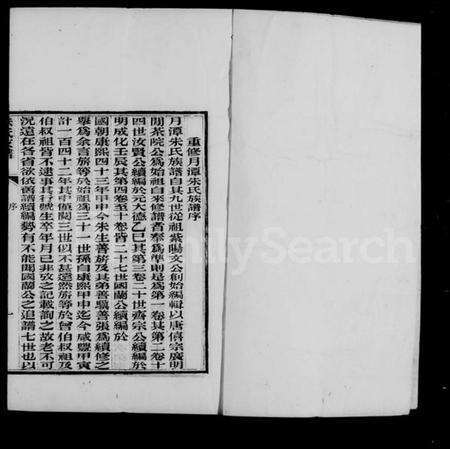 重修月潭朱氏族譜序
月潭朱氏族譜自其九世從祖紫陽文公創始編輯以唐僖宗廣明
間茶院公為始祖自來修譜者奉為準則是為第一卷其第二卷十
四世汝賢公續編於元大德乙巳其第三卷二十世齋宗公續編於
明成化壬辰其第四卷至十卷皆二十七世國蘭公續編於
國朝康熙四十三年甲申今朱生善旂及其弟善驥善張為續修之
舉為余言旂等於始祖為三十一世孫自康熙甲申迄今咸豐甲寅
計一百四十二年其中僅閱三世似不甚遠然旂等於曾伯叔祖及
伯叔祖皆不逮事其行號生卒年月日非攷之記載詢之故老不可
況遠在各省欲依舊譜續編勢有不能聞國蘭公之追譜七世也以
序
FamilySearch